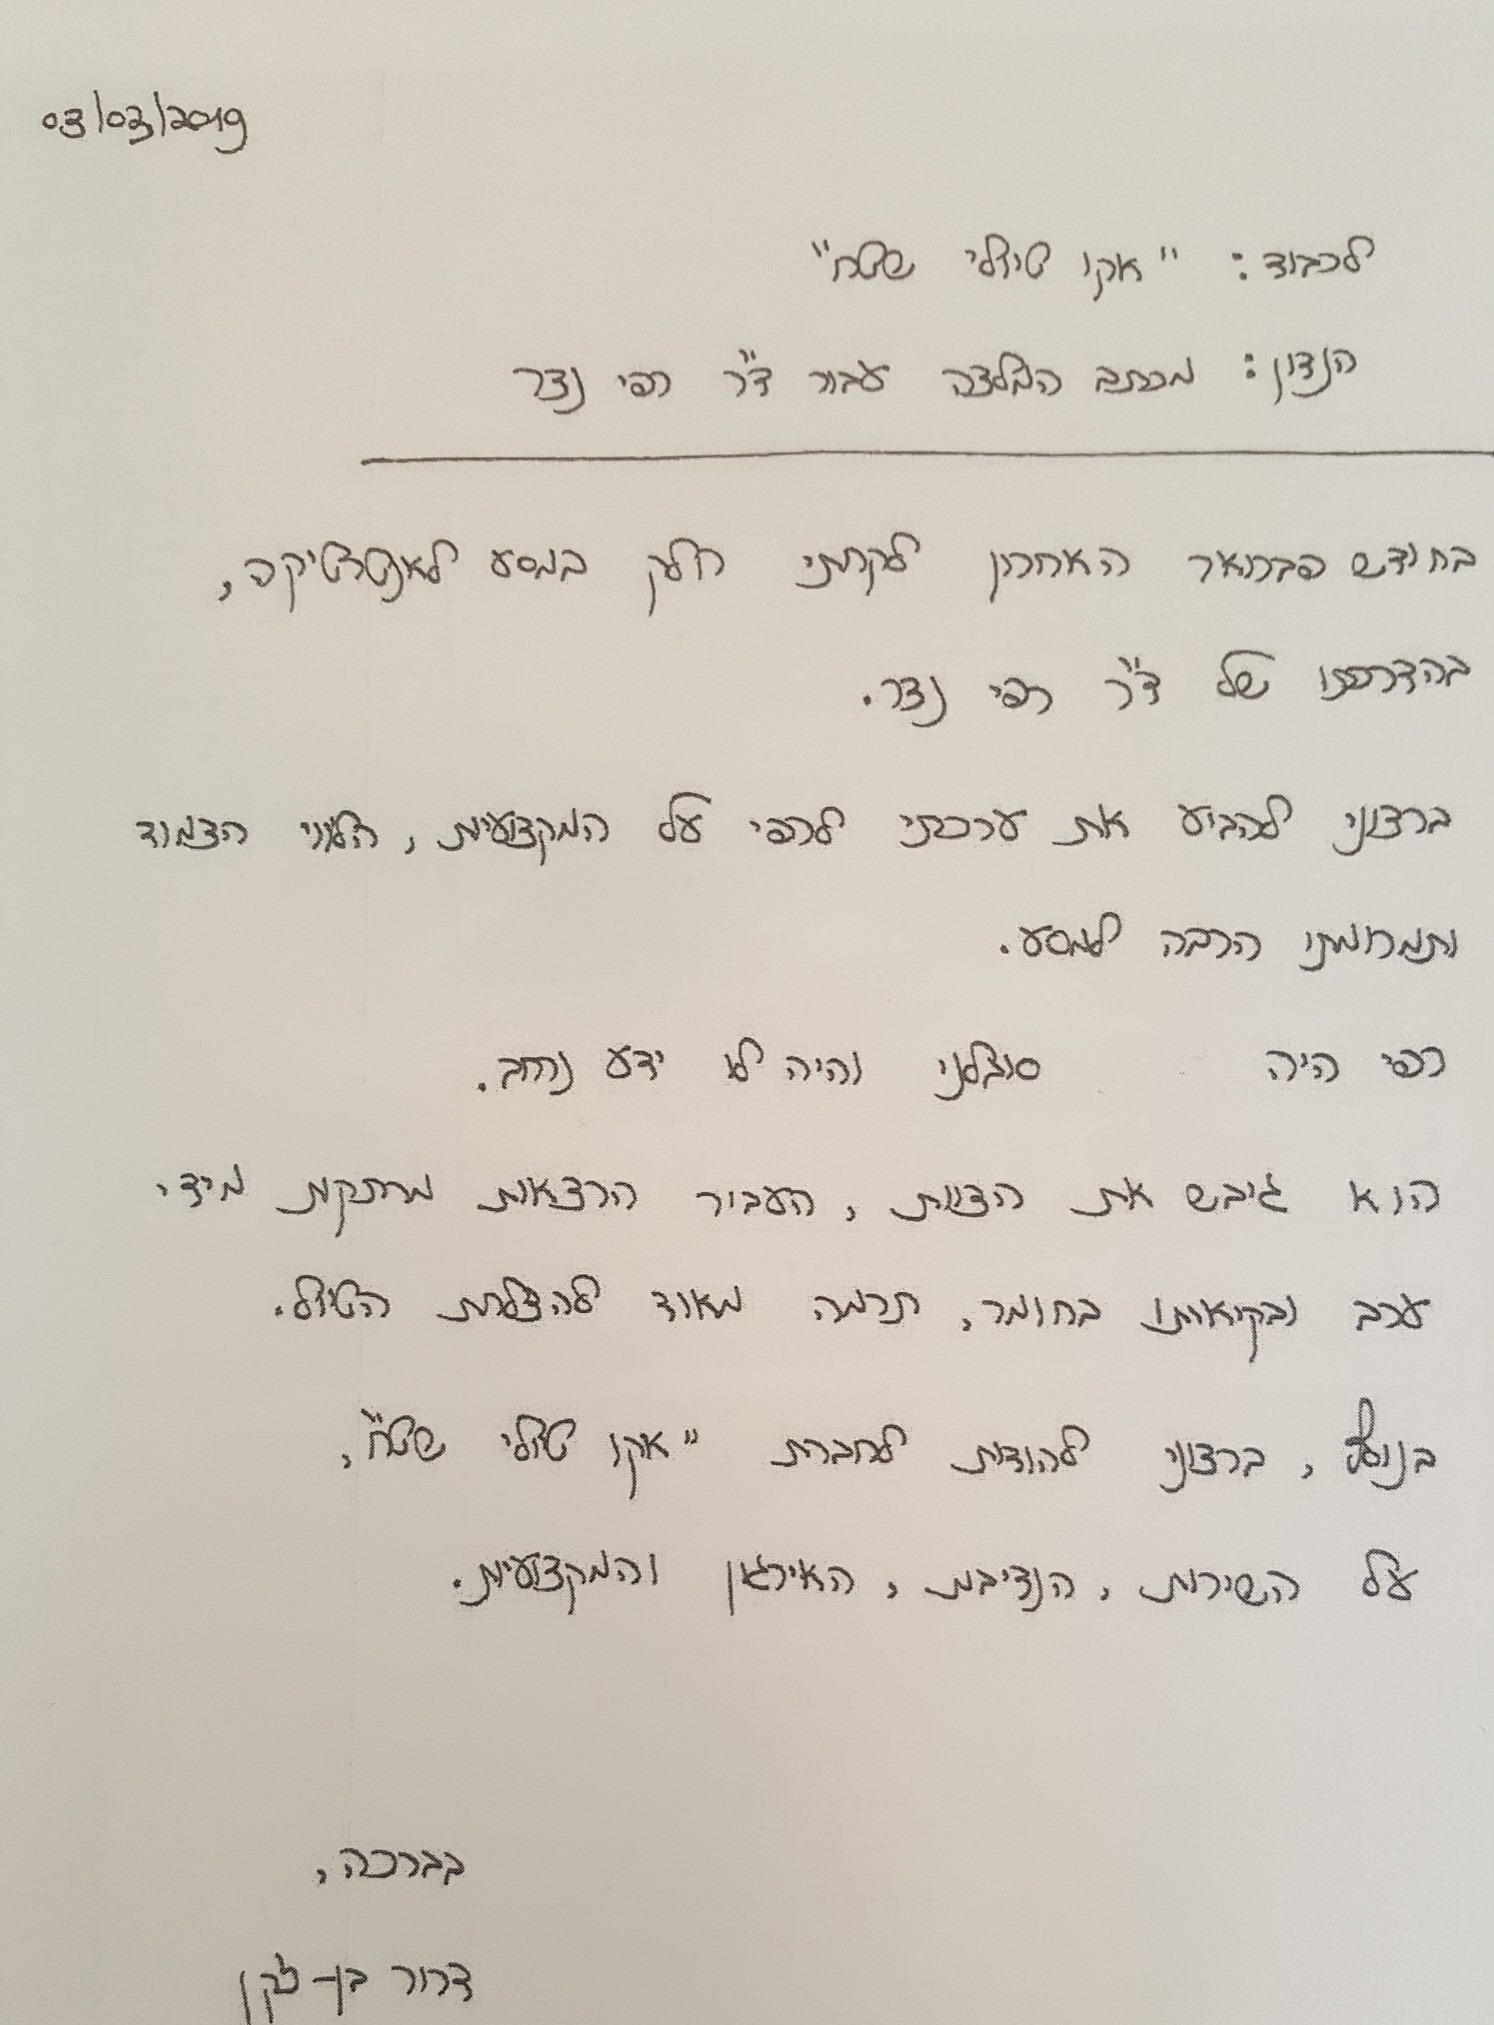 03/03/2019
לכבוד: "אקו טיולי שטח"
הנדון: מכתב המלצה עבור ד"ר רפי נצר
בחודש פברואר האחרון לקחתי חלק במסע לאנטרטיקה,
בהדרכתו של ד"ר רפי נצר.
ברצוני להביע את הערכתי לרפי על המקצועיות, הליווי הצמוד
ותמרומתו הרבה למסע.
רפי היה סובלני והיה לו ידע נרחב.
הוא גיבש את הצוות, העביר הרצאות מרתקות מידי
ערב ובקיאותו בחומר, תרמה מאוד להצלחת הטיול.
בנוסף, ברצוני להודות לחברת "אקו טיולי שטח",
על השירות, הנדיבות, האירגון והמקצועיות.
בברכה,
דרור בן-